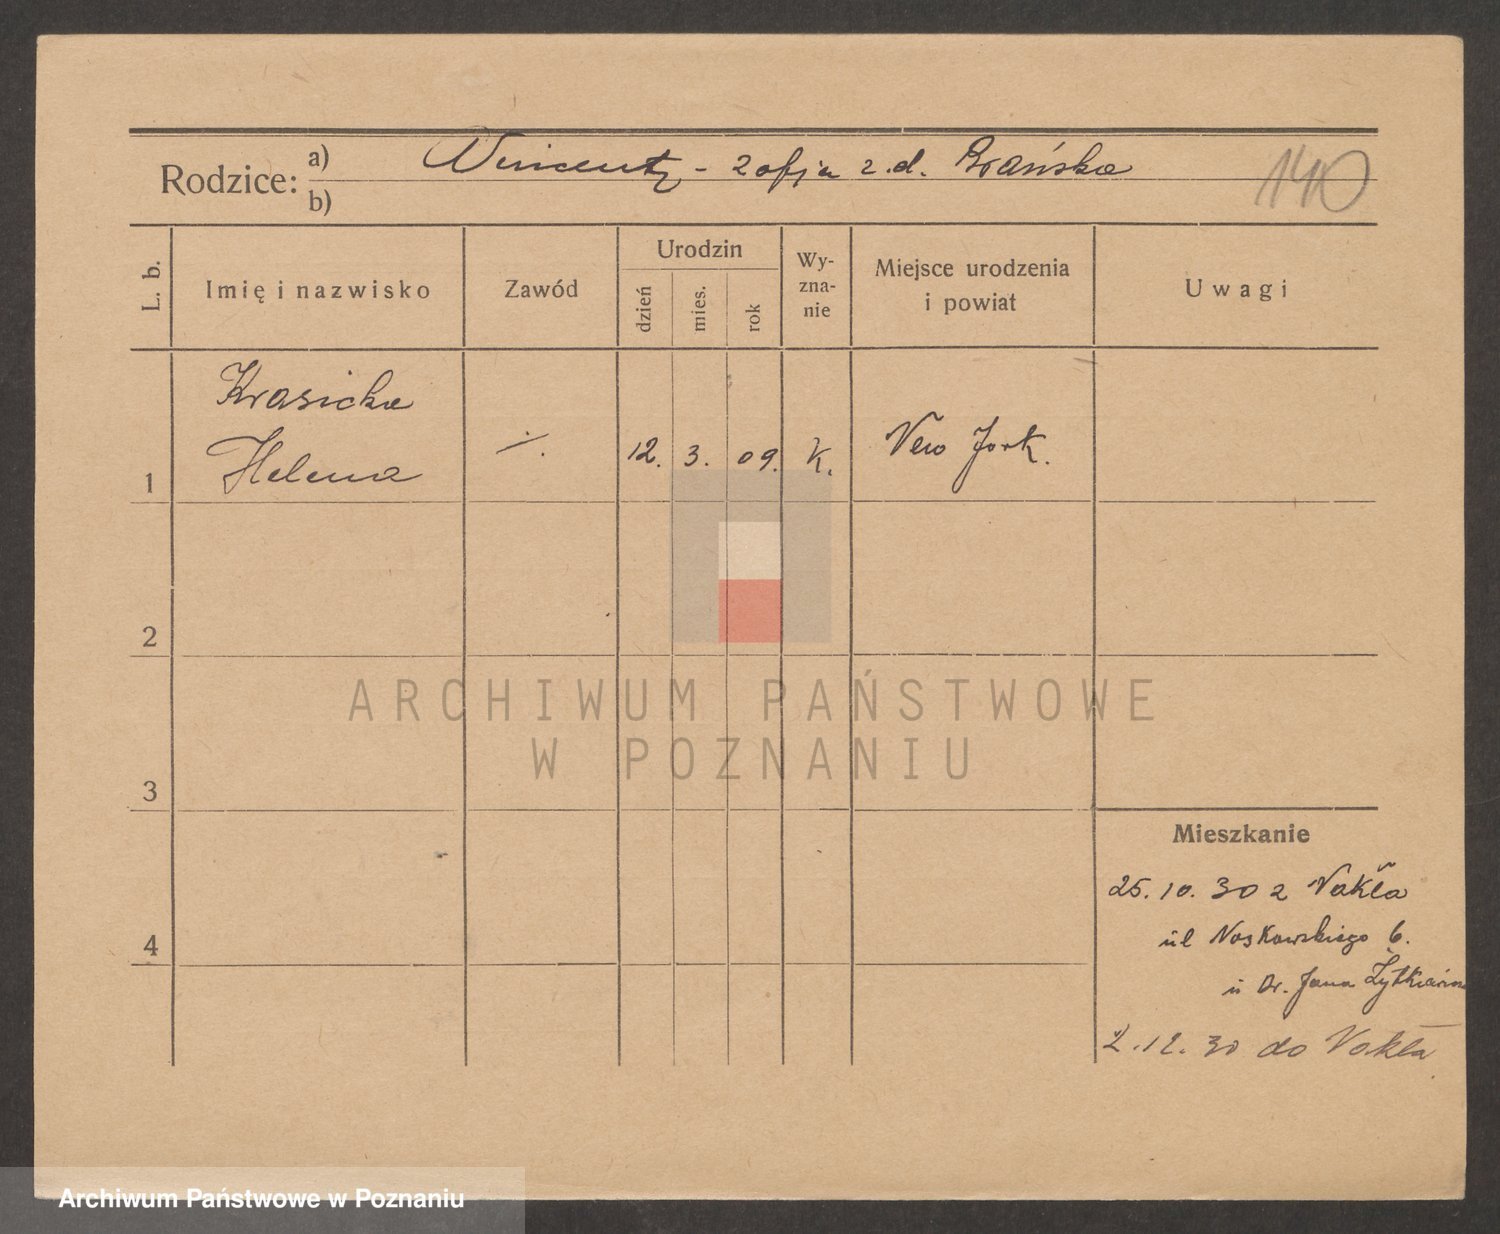 Rodzice: a) Wincenty - Zofja z.d. Brańska
b)
140
L. b. Imię i nazwisko Zawód Urodzin dzień mies. rok Wyznanie Miejsce urodzenia i powiat Uwagi
Krasicka
Helena
1 ./. 12. 3. 09. K. New Jork.
2
3
4
ARCHIWUM PAŃSTWOWE
W POZNANIU
Mieszkanie
25. 10. 30 z Nakła
ul Noskowskiego 6.
u Dr. Jana
2.12. 30 do Nakła
Archiwum Państwowe w Poznaniu